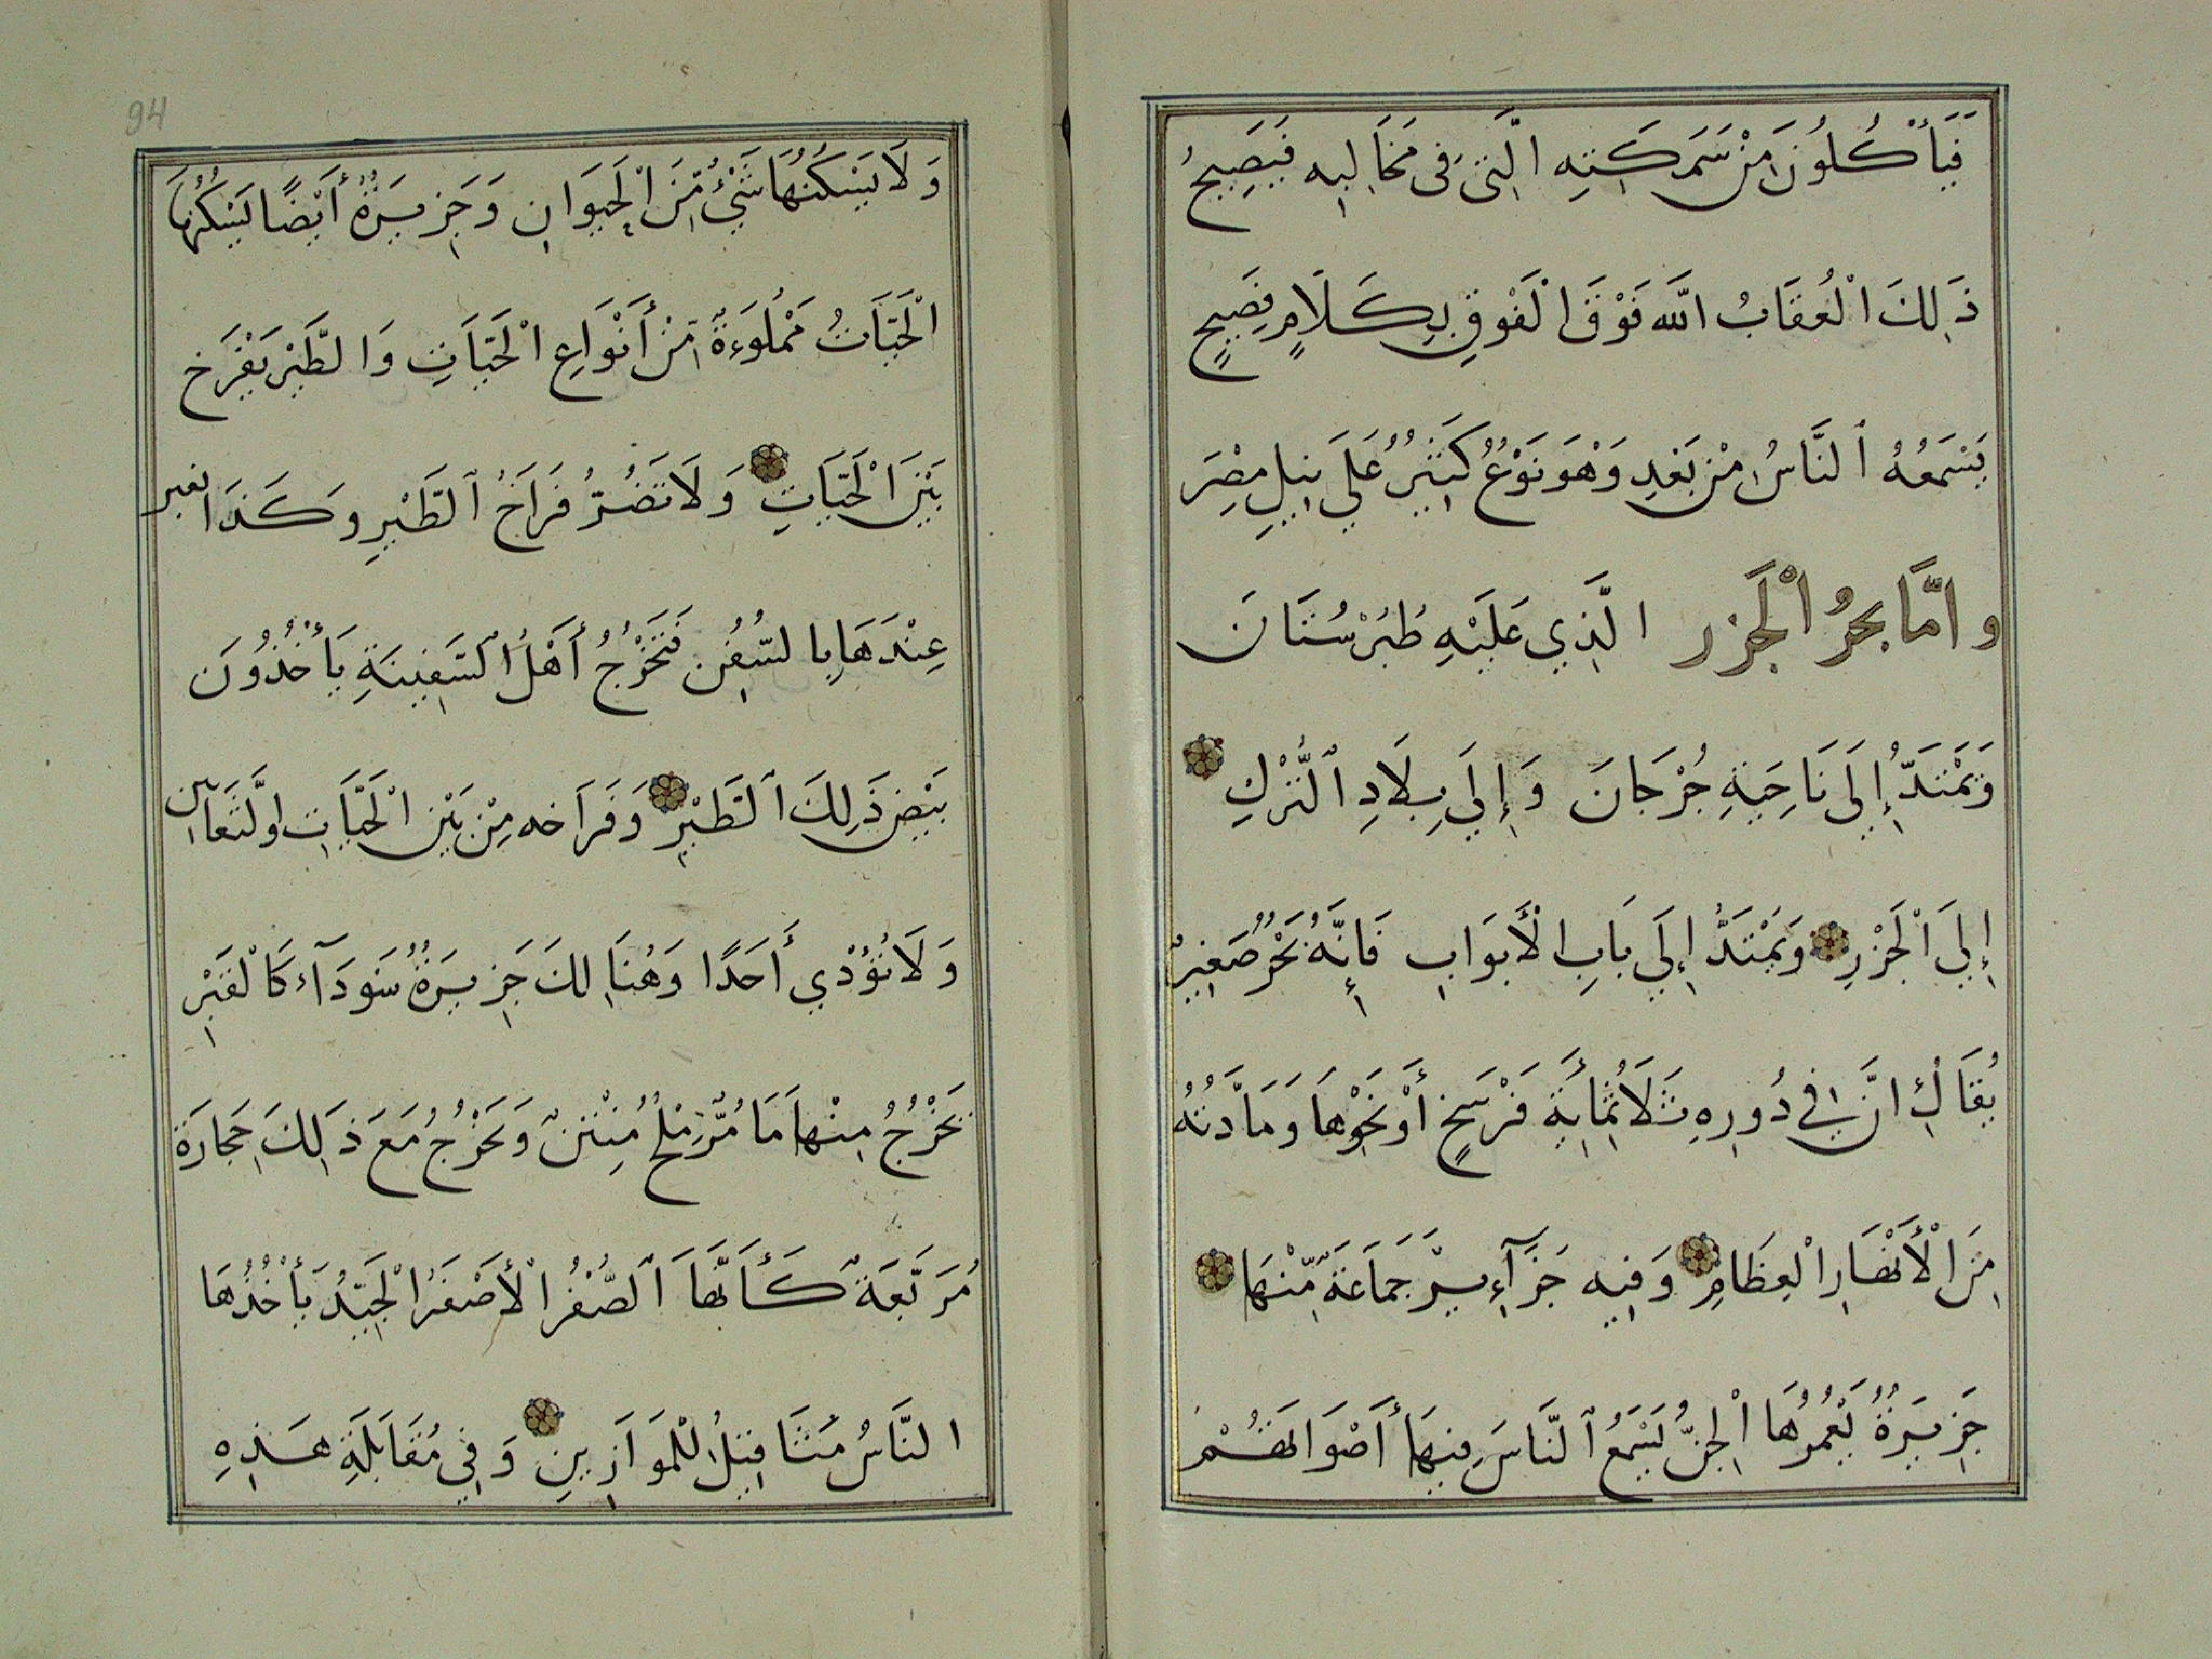 فَيَأْكُلُونَ مِنْ سَمَكَتِهِ الَّتِي فِي مَخَالِبِهِ فَيَصِيحُ
ذَلِكَ الْعُقَابُ اللّٰه فَوْقَ الْفَوْقِ بِكَلَامٍ فَصِيحٍ
يَسْمَعُهُ ٱلنَّاسُ مِنْ بَعْدِ وَهْوَ نَوْعٌ كَثِيرٌ عَلَي نِيلِ مِصْرَ
وامَّا بحرُ الْجَزر الَّذِي عَلَيْهِ طُبُرْسُتَانَ
وَيَمْتَدُّ إِلَي نَاحِيَةِ جُرْجَانَ وَإِلَي بِلَادِ ٱلتُّرْكِ
إِلَي الْجَزْرِ وَيَمْتَدُّ إِلَي بَابِ الْأَبوَابِ فَإِنَّهُ بَحْرٌ صَغِيرٌ
يُقَالُ انَّ فِي دُورِهِ ثَلَاثُمِائَةِ فَرْسَخٍ أَوْ نَحْوِهَا وَمَادَّتُهُ
مِنَ الْأَنْهَارِ الْعِظَامِ وَفِيهِ جَزَآءِيرٌ جَمَاعَةٌ مِّنْهَا
جَزِيرَةٌ يَعْمُرُهَا الْجِنُّ يَسْمَعُ ٱلنَّاسَ فِيهَا أَصْوَاتَهُمْ
وَلَا يَسْكُنُهَا شَيْءٌ مِّنَ الْحَيَوَانِ وَجَزِيرَةٌ أَيْضًا يَسْكُنُهَا
الْحَيَّاتُ مَمْلُوءَةٌ مِّنْ أَنْوَاعِ الْحَيَّاتِ وَالطَّيْرُ يَفْرَخ
بَيْنَ الْحَيَّاتِ وَلَا تَضُرُّ فَرَاخُ ٱلطَّيْرِ وَكَذَا
عِنْدَهَا بِالسُّفُنِ فَتَخْرُجُ أَهْلُ السَّفِينَةِ يَأْخُذُونَ
بَيْضَ ذَلِكَ ٱلطَّيْرِ وَفَرَاخه مِنْ بَيْنِ الْحَيَّاتِ اوِلثَّعَابِين
وَلَا تُؤْذِي أَحَدًا وَهُنَالِكَ جَزِيرَةٌ سَودَآء كَالْقَبْرِ
يَخْرُجُ مِنْهَا مَا مُّرٌّ مِلْحٌ مُنِتْنٌ وَيَخْرُجُ مَعَ ذَلِكَ حِجَارَة
مُرَبَّعَةٌ كَأَنَّهَا ٱلصُّفْرُ الْأَصْفَرُ الْجَيِّدُ يَأْخُذُهَا
النَّاسُ مَثَاقِيلُ لْلمَوَازِينِ وَفِي مُقَابَلَةِ هَذِهِ
94